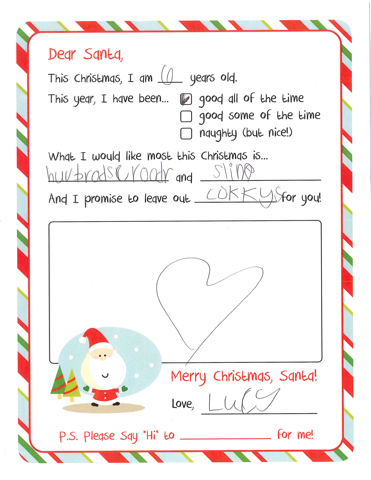 Dear Santa,
This Christmas, I am 6 years old.
This year, I have been... good all of the time
good some of the time
naughty (but nice!)
What I would like most this Christmas is...
and slime
And I promise to leave out cokkys for you!
Merry Christmas, Santa!
Love, Lucy
P.S. Please Say "Hi" to for me!